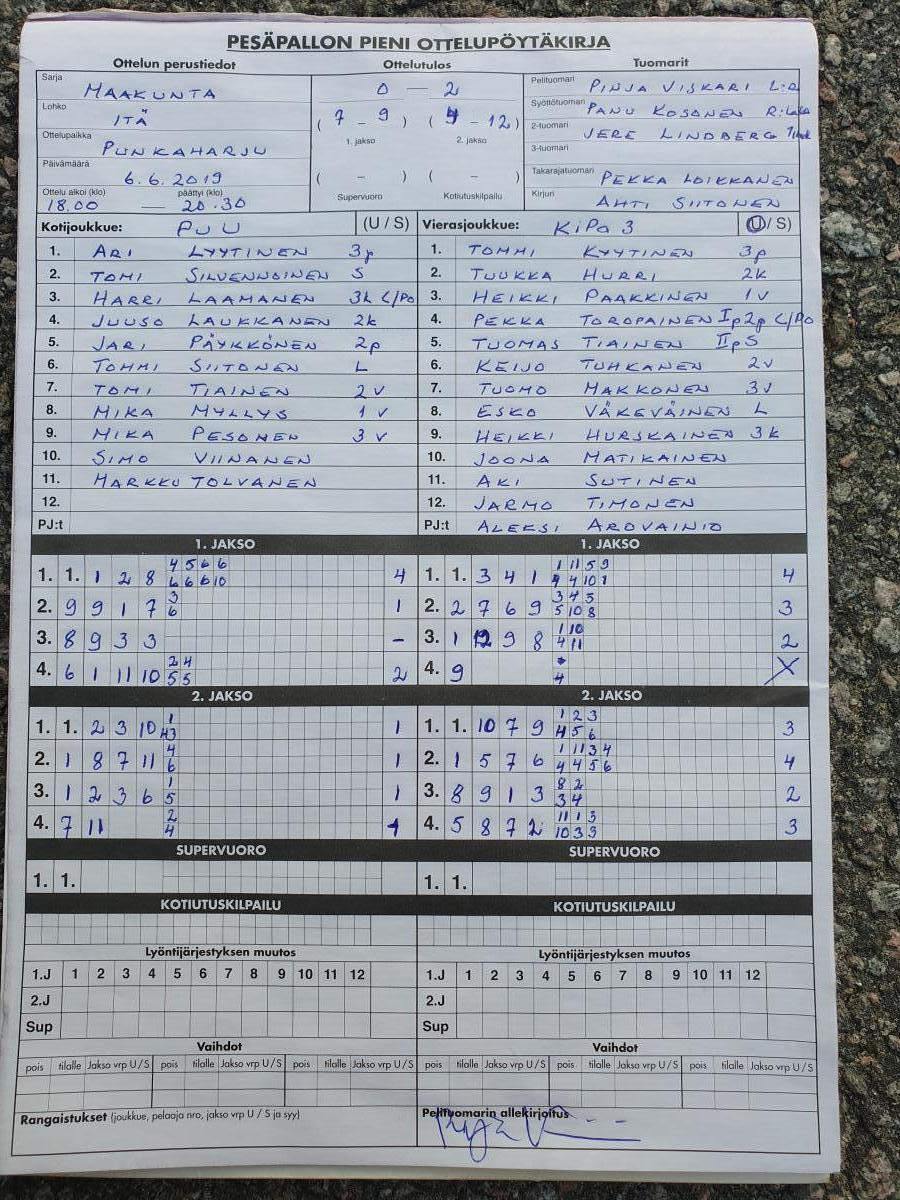 PESÄPALLON PIENI OTTELUPÖYTÄKIRJA
Ottelun perustiedot
Sarja MAAKUNTA
Lohko ITÄ
Ottelupaikka PUNKAHARJU
Päivämäärä 6.6.2019
Ottelu alkoi (klo) päättyi (klo)
18.00 — 20.30
Ottelutulos
0 — 2
( 7 - 9 ) ( 4 - 12 )
1. jakso 2. jakso
( - ) ( - )
Supervuoro Kotiutuskilpailu
Tuomarit
Pelituomari PINJA VISKARI
Syöttötuomari PANU KOSONEN
2-tuomari JERE LINDBERG
3-tuomari
Takarajatuomari PEKKA LOIKKANEN
Kirjuri AHTI SIITONEN
Kotijoukkue: PUU (U / S)
1. ARI LYYTINEN 3p
2. TOMI SILVENNOINEN S
3. HARRI LAAMANEN 3k C/Po
4. JUUSO LAUKKANEN 2k
5. JARI PÄYKKÖNEN 2p
6. TOMMI SIITONEN L
7. TOMI TIAINEN 2v
8. MIKA MYLLYS 1v
9. MIKA PESONEN 3v
10. SIMO VIINANEN
11. MARKKU TOLVANEN
12.
PJ:t
Vierasjoukkue: KiPa 3 (U / S)
1. TOMMI KYYTINEN 3p
2. TUUKKA HURRI 2k
3. HEIKKI PAAKKINEN 1v
4. PEKKA TOROPAINEN Ip2p C/Po
5. TUOMAS TIAINEN IIpS
6. KEIJO TUHKANEN 2v
7. TUOMO MAKKONEN 3v
8. ESKO VÄKEVÄINEN L
9. HEIKKI HURSKAINEN 3k
10. JOONA MATIKAINEN
11. AKI SUTINEN
12. JARMO TIMONEN
PJ:t ALEKSI AROVAINIO
1. JAKSO
1. 1. 1 2 8 4 5 6 6 4
6 6 6 10
2. 9 9 1 7 3 1
6
3. 8 9 3 3 -
4. 6 1 11 10 2 4 2
5 5
2. JAKSO
1. 1. 2 3 10 1 1
2. 1 8 7 11 4 1
6
3. 1 2 3 6 1 1
5
4. 7 11 2 1
4
SUPERVUORO
1. 1.
KOTIUTUSKILPAILU
Lyöntijärjestyksen muutos
1.J 1 2 3 4 5 6 7 8 9 10 11 12
2.J
Sup
Vaihdot
pois tilalle Jakso vrp U/S pois tilalle Jakso vrp U/S pois tilalle Jakso vrp U/S
Rangaistukset (joukkue, pelaaja nro, jakso vrp U / S ja syy)
1. JAKSO
1. 1. 3 4 1 1 11 5 9 4
4 4 10 1
2. 2 7 6 9 3 4 5 3
5 10 8
3. 1 12 9 8 1 10 2
4 11
4. 9 X
4
2. JAKSO
1. 1. 10 7 9 1 2 3 3
4 5 6
2. 1 5 7 6 1 11 3 4 4
4 4 5 6
3. 8 9 1 3 8 2 2
3 4
4. 5 8 7 2 11 1 3 3
10 3 3
SUPERVUORO
1. 1.
KOTIUTUSKILPAILU
Lyöntijärjestyksen muutos
1.J 1 2 3 4 5 6 7 8 9 10 11 12
2.J
Sup
Vaihdot
pois tilalle Jakso vrp U/S pois tilalle Jakso vrp U/S pois tilalle Jakso vrp U/S
Pelituomarin allekirjoitus